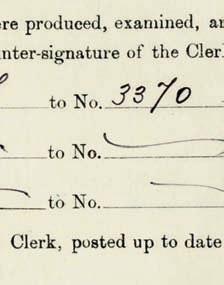 ere produced, examined, an
nter-signature of the Cler
to No. 3370
to No.
to No.
Clerk, posted up to date